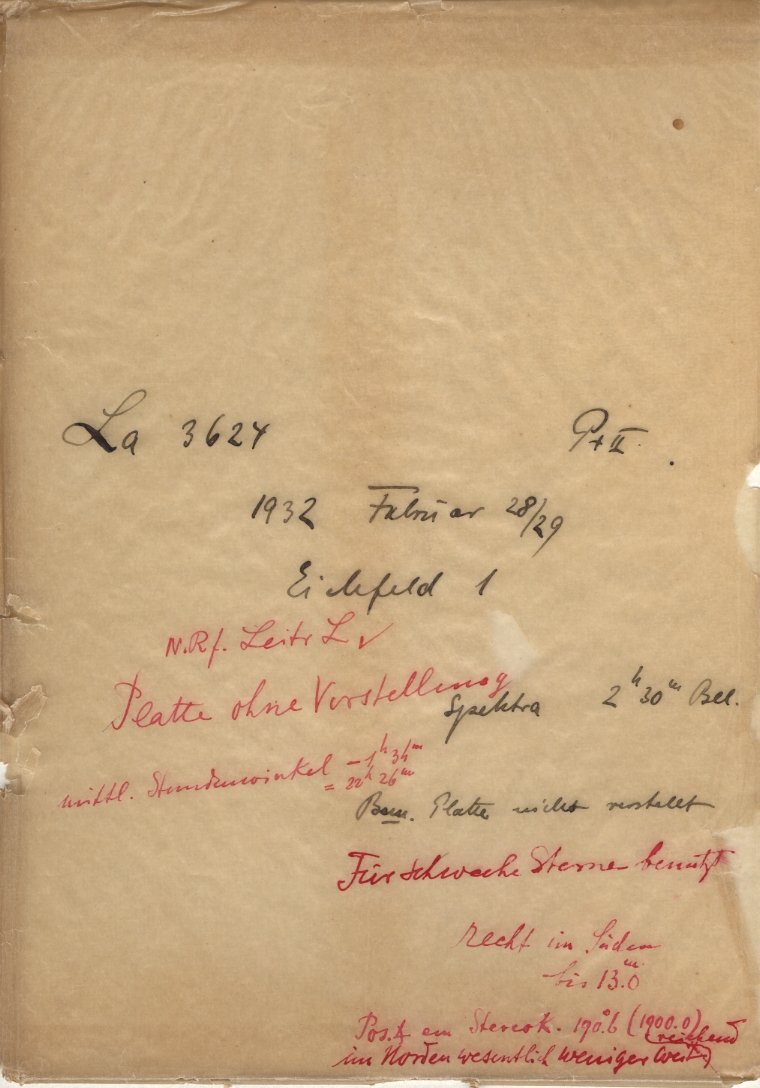 La 3624 Pr II.
1932 Februar 28/29
Eichfeld 1
N. Rf. Leitr L
Platte ohne Verstellung
Spektra 2ʰ 30ᵐ Bel.
mittl. Stundenwinkel −1ʰ 34ᵐ
= 22ʰ 26ᵐ
Bem. Platte nicht verstellt
Für schwache Sterne benutzt
reicht im Süden
bis 13.ᵐ0
Pos. ∡ am Stereok. 190°.6 (1900.0)
(reichend
im Norden wesentlich weniger weit)